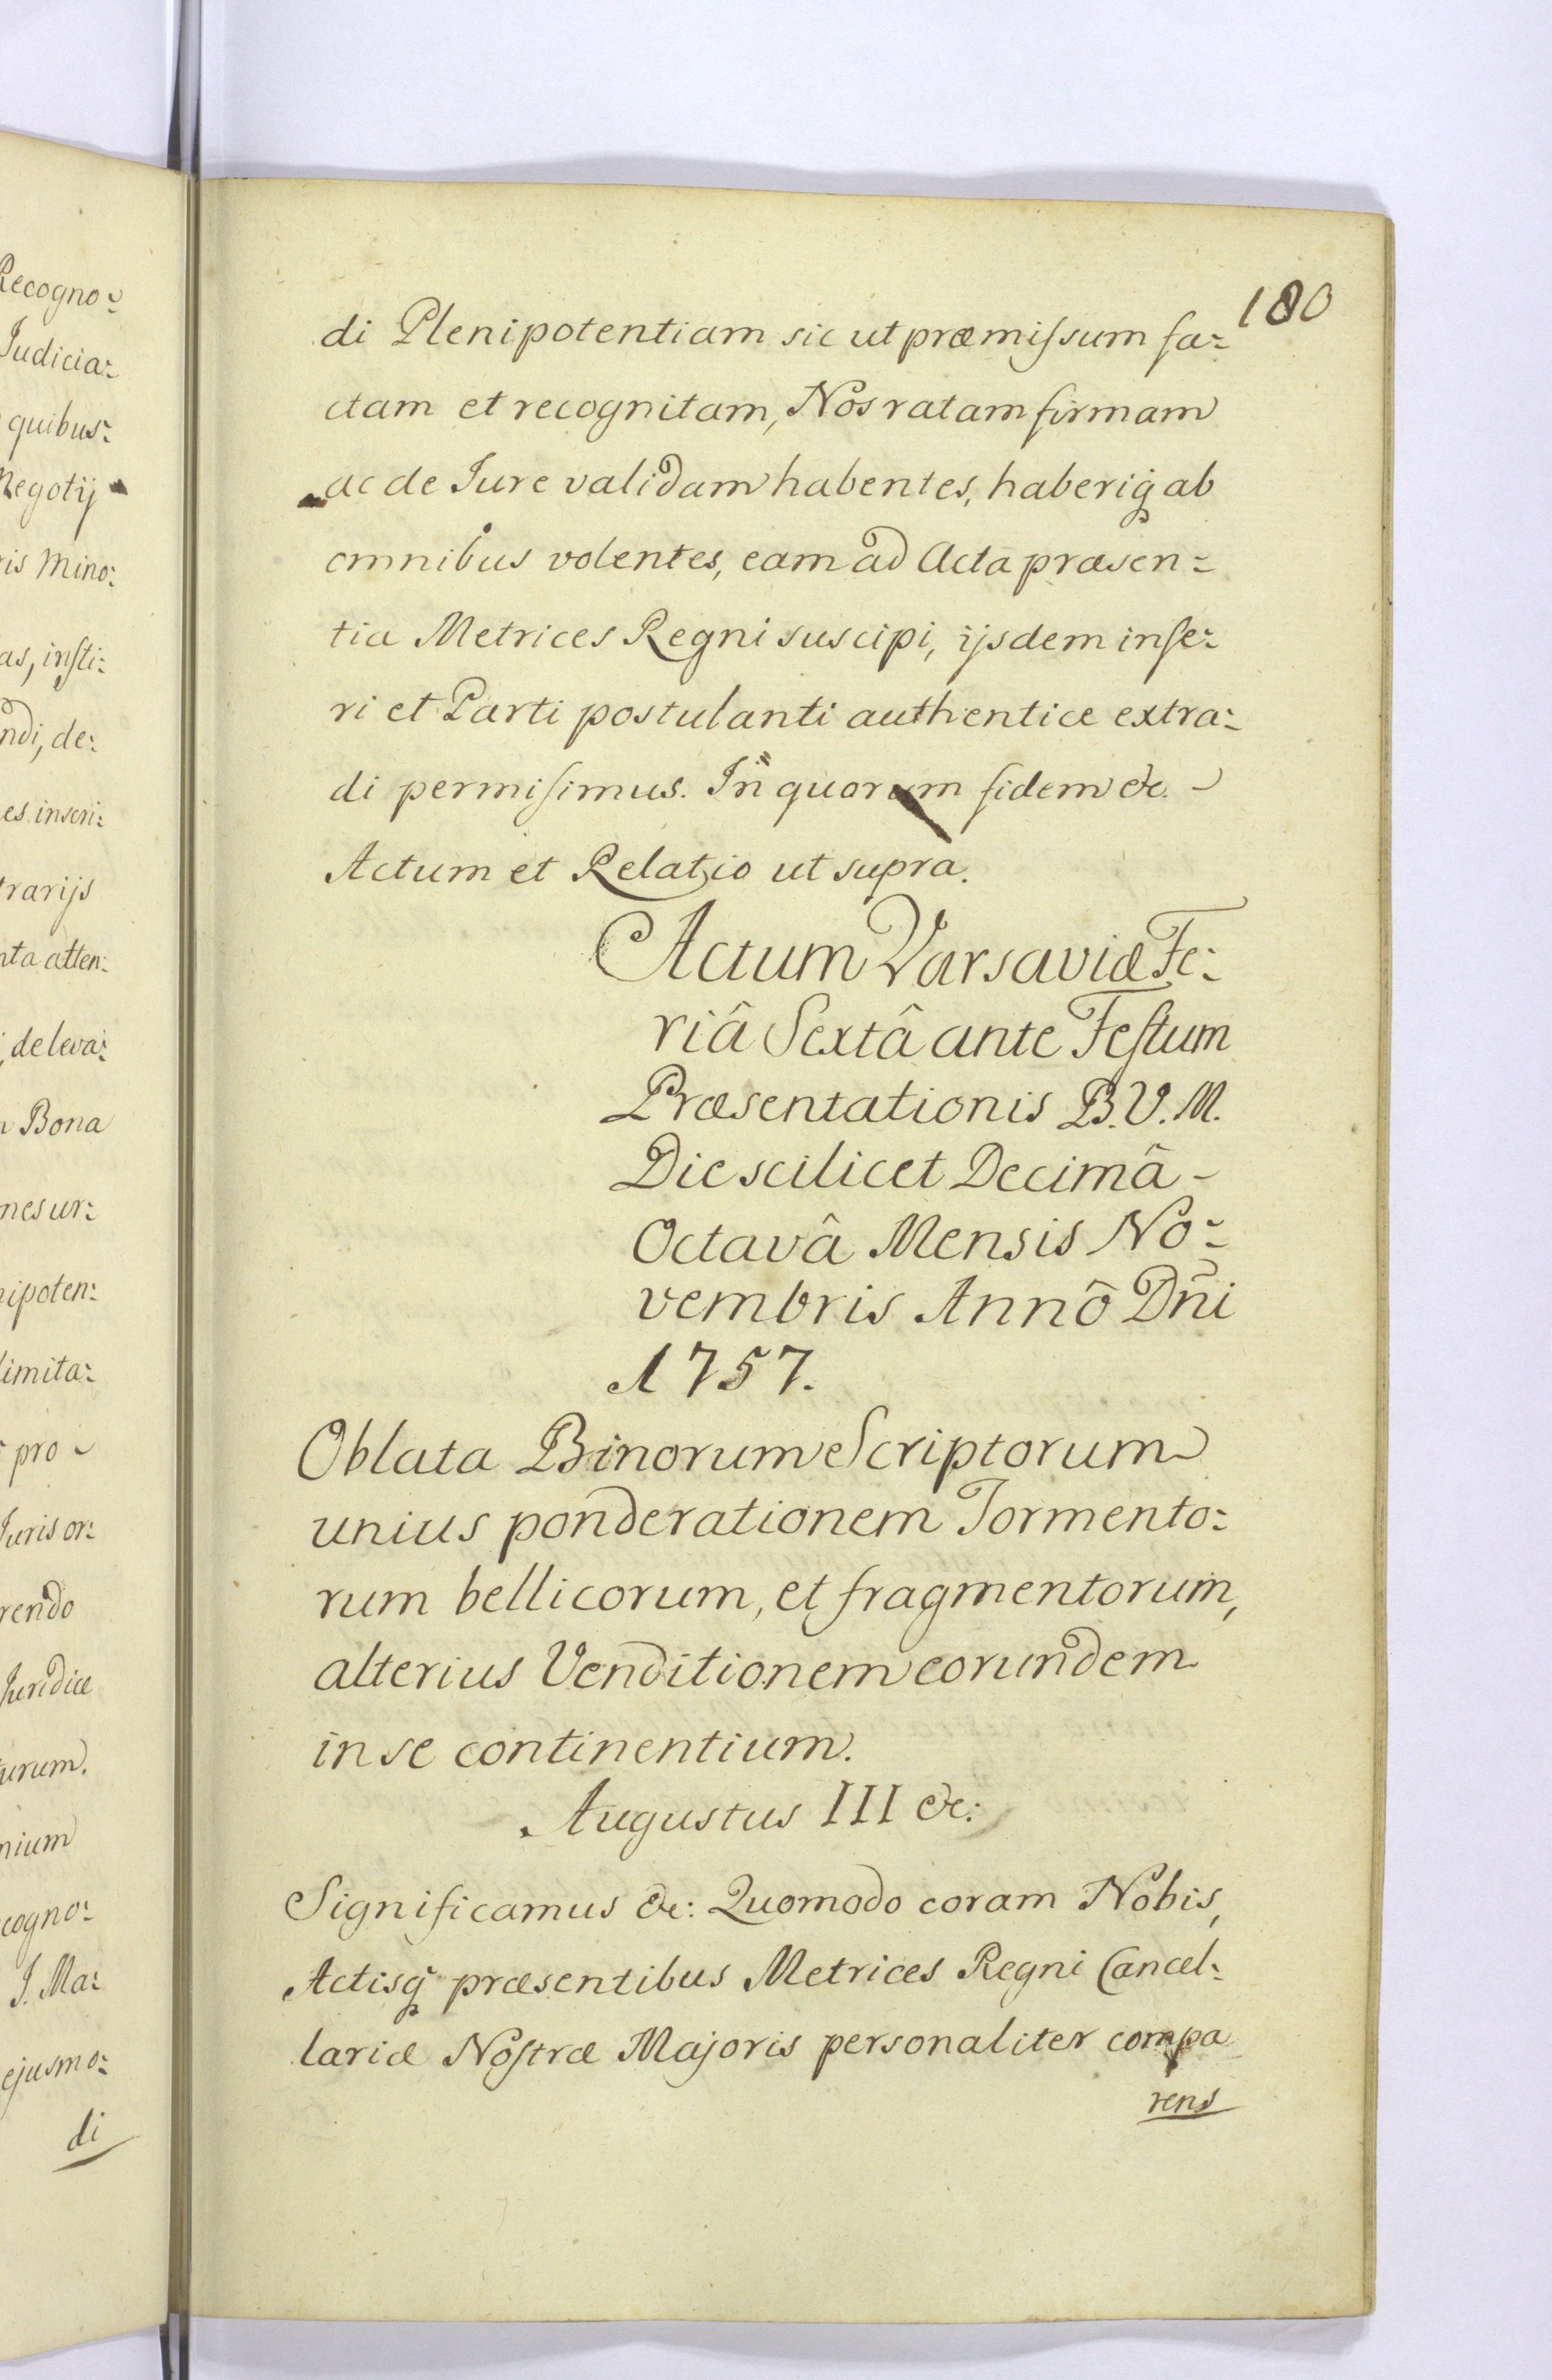 Recogno:
Judicia:
quibus:
Negotij
ris Mino:
as, insti:
ndi, de:
es inscri:
trarijs
nta atten:
deleva:
Bona
nes ur:
nipoten:
limita:
pro
Juris or:
rendo
Juridice
urum.
nium
cogno:
J. Ma:
ejusmo:
di
180
di Plenipotentiam sic ut præmissum fa:
ctam et recognitam, Nos ratam firmam
ac de Jure validam habentes, haberiq̃ ab
omnibus volentes, eam ad Acta præsen:
tia Metrices Regni suscipi, ijsdem inse:
ri et Parti postulanti authentice extra:
di permisimus. In quorum fidem &c.
Actum et Relatio ut supra.
Actum Varsaviæ Fe:
riâ Sextâ ante Festum
Præsentationis B.V.M.
Die scilicet Decimâ
Octavâ Mensis No:
vembris Annô Dn̄i
1757.
Oblata Binorum Scriptorum
unius ponderationem Tormento:
rum bellicorum, et fragmentorum,
alterius Venditionem eorundem
in se continentium.
Augustus III &c:
Significamus &c: Quomodo coram Nobis,
Actisq̃ præsentibus Metrices Regni Cancel:
lariæ Nostræ Majoris personaliter compa
rens